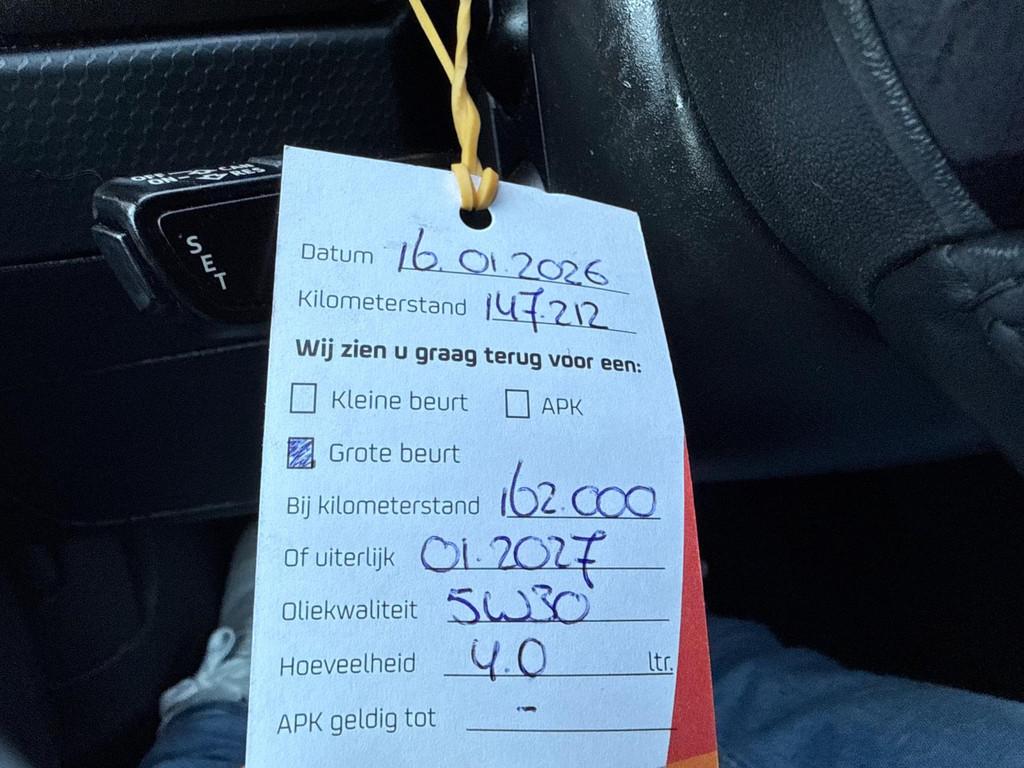 OFF CAN
ON RES
SET
Datum 16.01.2026
Kilometerstand 147.212
Wij zien u graag terug voor een:
Kleine beurt APK
Grote beurt
Bij kilometerstand 162.000
Of uiterlijk 01.2027
Oliekwaliteit 5W30
Hoeveelheid 4.0 ltr.
APK geldig tot -